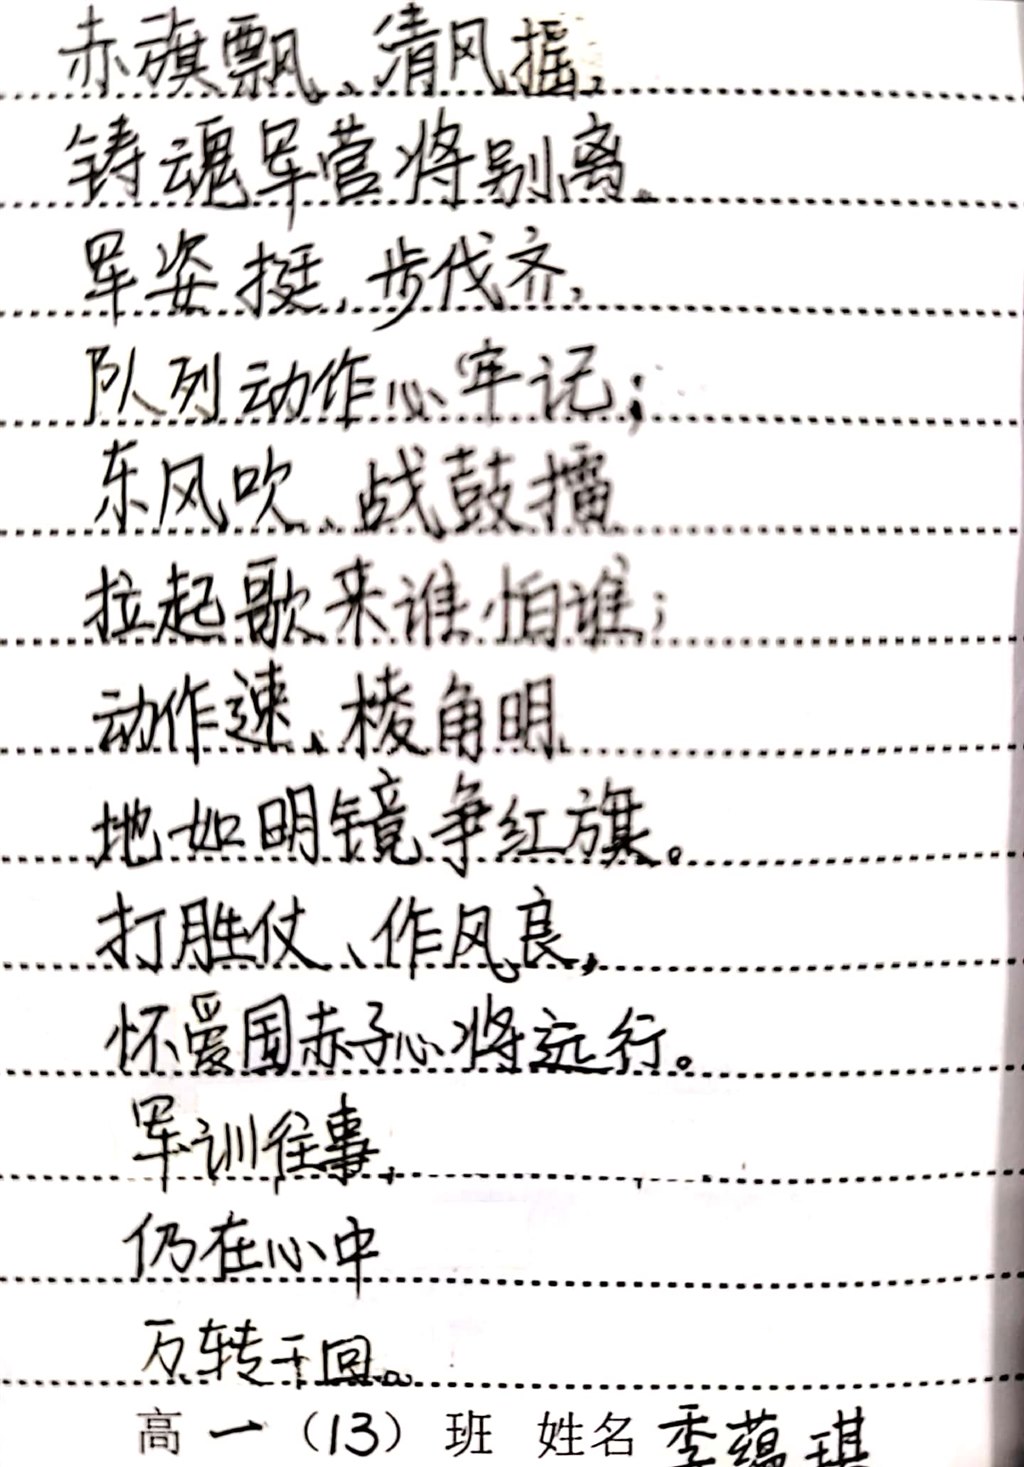 赤旗飘、清风摇,
铸魂军营将别离。
军姿挺、步伐齐,
队列动作心牢记;
东风吹、战鼓擂
拉起歌来谁怕谁;
动作速、棱角明,
地如明镜争红旗。
打胜仗、作风良,
怀爱国赤子心将远行。
军训往事,
仍在心中
万转千回。
高一(13)班 姓名 季蕴琪